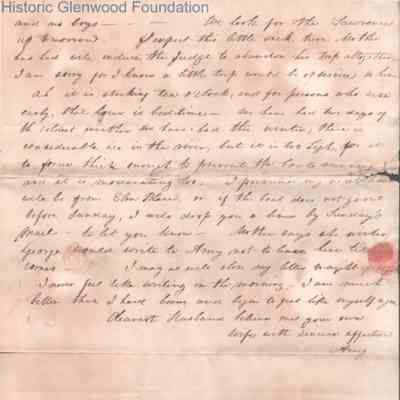 Historic Glenwood Foundation
and no boys — — — We look for the Lawrence
up tomorrow. I expect this little sick turn Mother
has had will induce the Judge to abandon his trip altogether
I am sorry for I know a little trip would be of service to him
Ah it is striking ten o'clock, and for persons who rise
early, this hour is bedtime — We have had two days of
the coldest weather we have had this winter, there is
considerable ice in the river, but it is too high for it
to form thick enough to prevent the boats
and it is moderating too. I presume my next
will be from Elm Place or if the boat does not go out
before Sunday, I will drop you a line by Sunday's
mail to let you know — Mother says she wishes
George would write to Amy not to leave here till
comes I may as well close my letter tonight
I never feel like writing in the morning. I am much
better than I have been and begin to feel like myself again
Dearest Husband believe me your own
wife with sincere affection
Amy